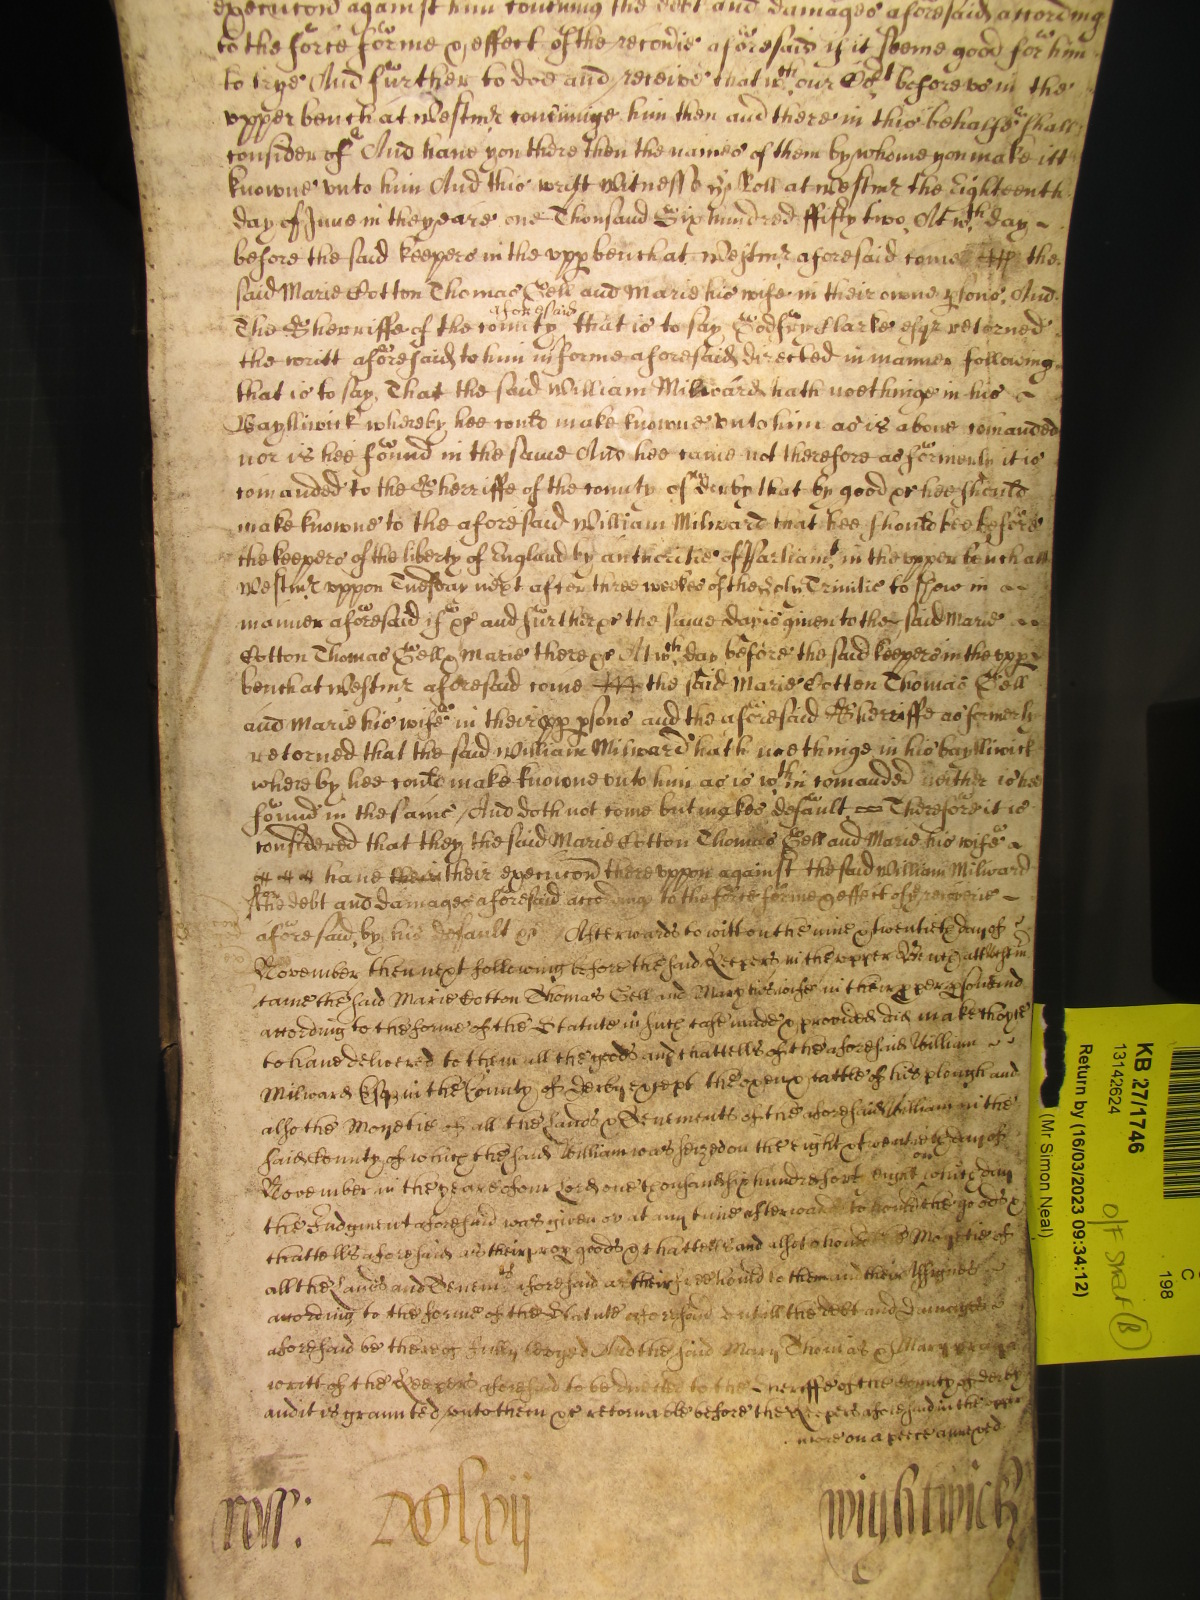 execucon against him touching the debt and damages aforesaid according
to the force forme & effect of the recovrie aforesaid if it seeme good for him
to trye And further to doe and receive that wch our Cot before us in the
upper bench at Westmr concerninge him then and there in this behalfe shall
consider of And have you there then the names of them by whome you make itt
knowne unto him And this writt Witness H Roll at Westmr the Eighteenth
day of June in the yeare one Thousand Six hundred fifty two, At wch day
before the said keepers in the upp bench at Westmr aforesaid come the
said Marie Cotton Thomas Gell and Marie his wife in their owne psons, And
aforesaid
The Sherriffe of the county that is to say Godfry Clarke esqr retorned
the writt aforesaid to him in forme aforesaid directed in manner following
that is to say, That the said William Milward hath noethinge in his
Baylliwick whereby hee could make knowne unto him as is above comanded
nor is hee found in the same And hee came not therefore as formerly it is
comanded to the Sherriffe of the county of derby that by good &c hee should
make knowne to the aforesaid William Milward that hee should bee before
the keepers of the liberty of England by authoritie of Parliamt in the upper bench att
Westmr uppon Tuesday next after three weekes of the Holy Trinitie to shew in
manner aforesaid if &c and further &c the same day is given to the said Marie
Cotton Thomas Gell & Marie there &c At wch day before the said keepers in the upp
bench at Westmr aforesaid come the said Marie Cotton Thomas Gell
and Marie his wife in their pp psons and the aforesaid Sherriffe as formerly
retorned that the said William Milward hath noethinge in his baylliwick
whereby hee could make knowne unto him as is wthin comanded neither is hee
found in the same, And doth not come but makes default Therefore it is
considered that they the said Marie Cotton Thomas Gell and Marie his wife
have their execucon thereuppon against the said William Milward
for the debt and damages aforesaid according to the force forme & effect of recoverie
aforesaid by his default &c Afterwards to witt on the nine & twentieth day of
November then next following before the said Keepers in the upper Bench att Westm
came the said Marie Cotton Thomas Gell and Mary his wife in their pper psons and
according to the forme of the Statute in such case made & provided did make choyce
to have delivered to them all the goods and chattells of the aforesaid William
Milward Esqr in the County of Derby except the oxen & cattle of his plough and
also the Moyetie of all the Lands & Tenements of the aforesaid William in the
said County of which the said William was seized on the eight & twentieth day of
on
November in the yeare of our Lord one thousand six hundred fort eight which day
the Judgment aforesaid was given or at any time afterward to hould the goods &
chattells aforesaid as their prop goods & chattells and also to hould Moyetie of
all the Lands and Tenemts aforesaid as their freehould to them and their Assignes
according to the forme of the Statute aforesaid untill the debt and damages
aforesaid be thereof fully levyed And the said Mary Thomas & Mary praye a
writt of the Keepers aforesaid to be directed to the Sheriffe of the County of derby
and it is graunted unto them &c retornable before the Keepers aforesaid in the upper
more on a peece annexed
Roll: DClxij
Wightwick
C
198
KB 27/1746
13142624
Return by (16/03/2023 09:34:12)
(Mr Simon Neal)
O/F